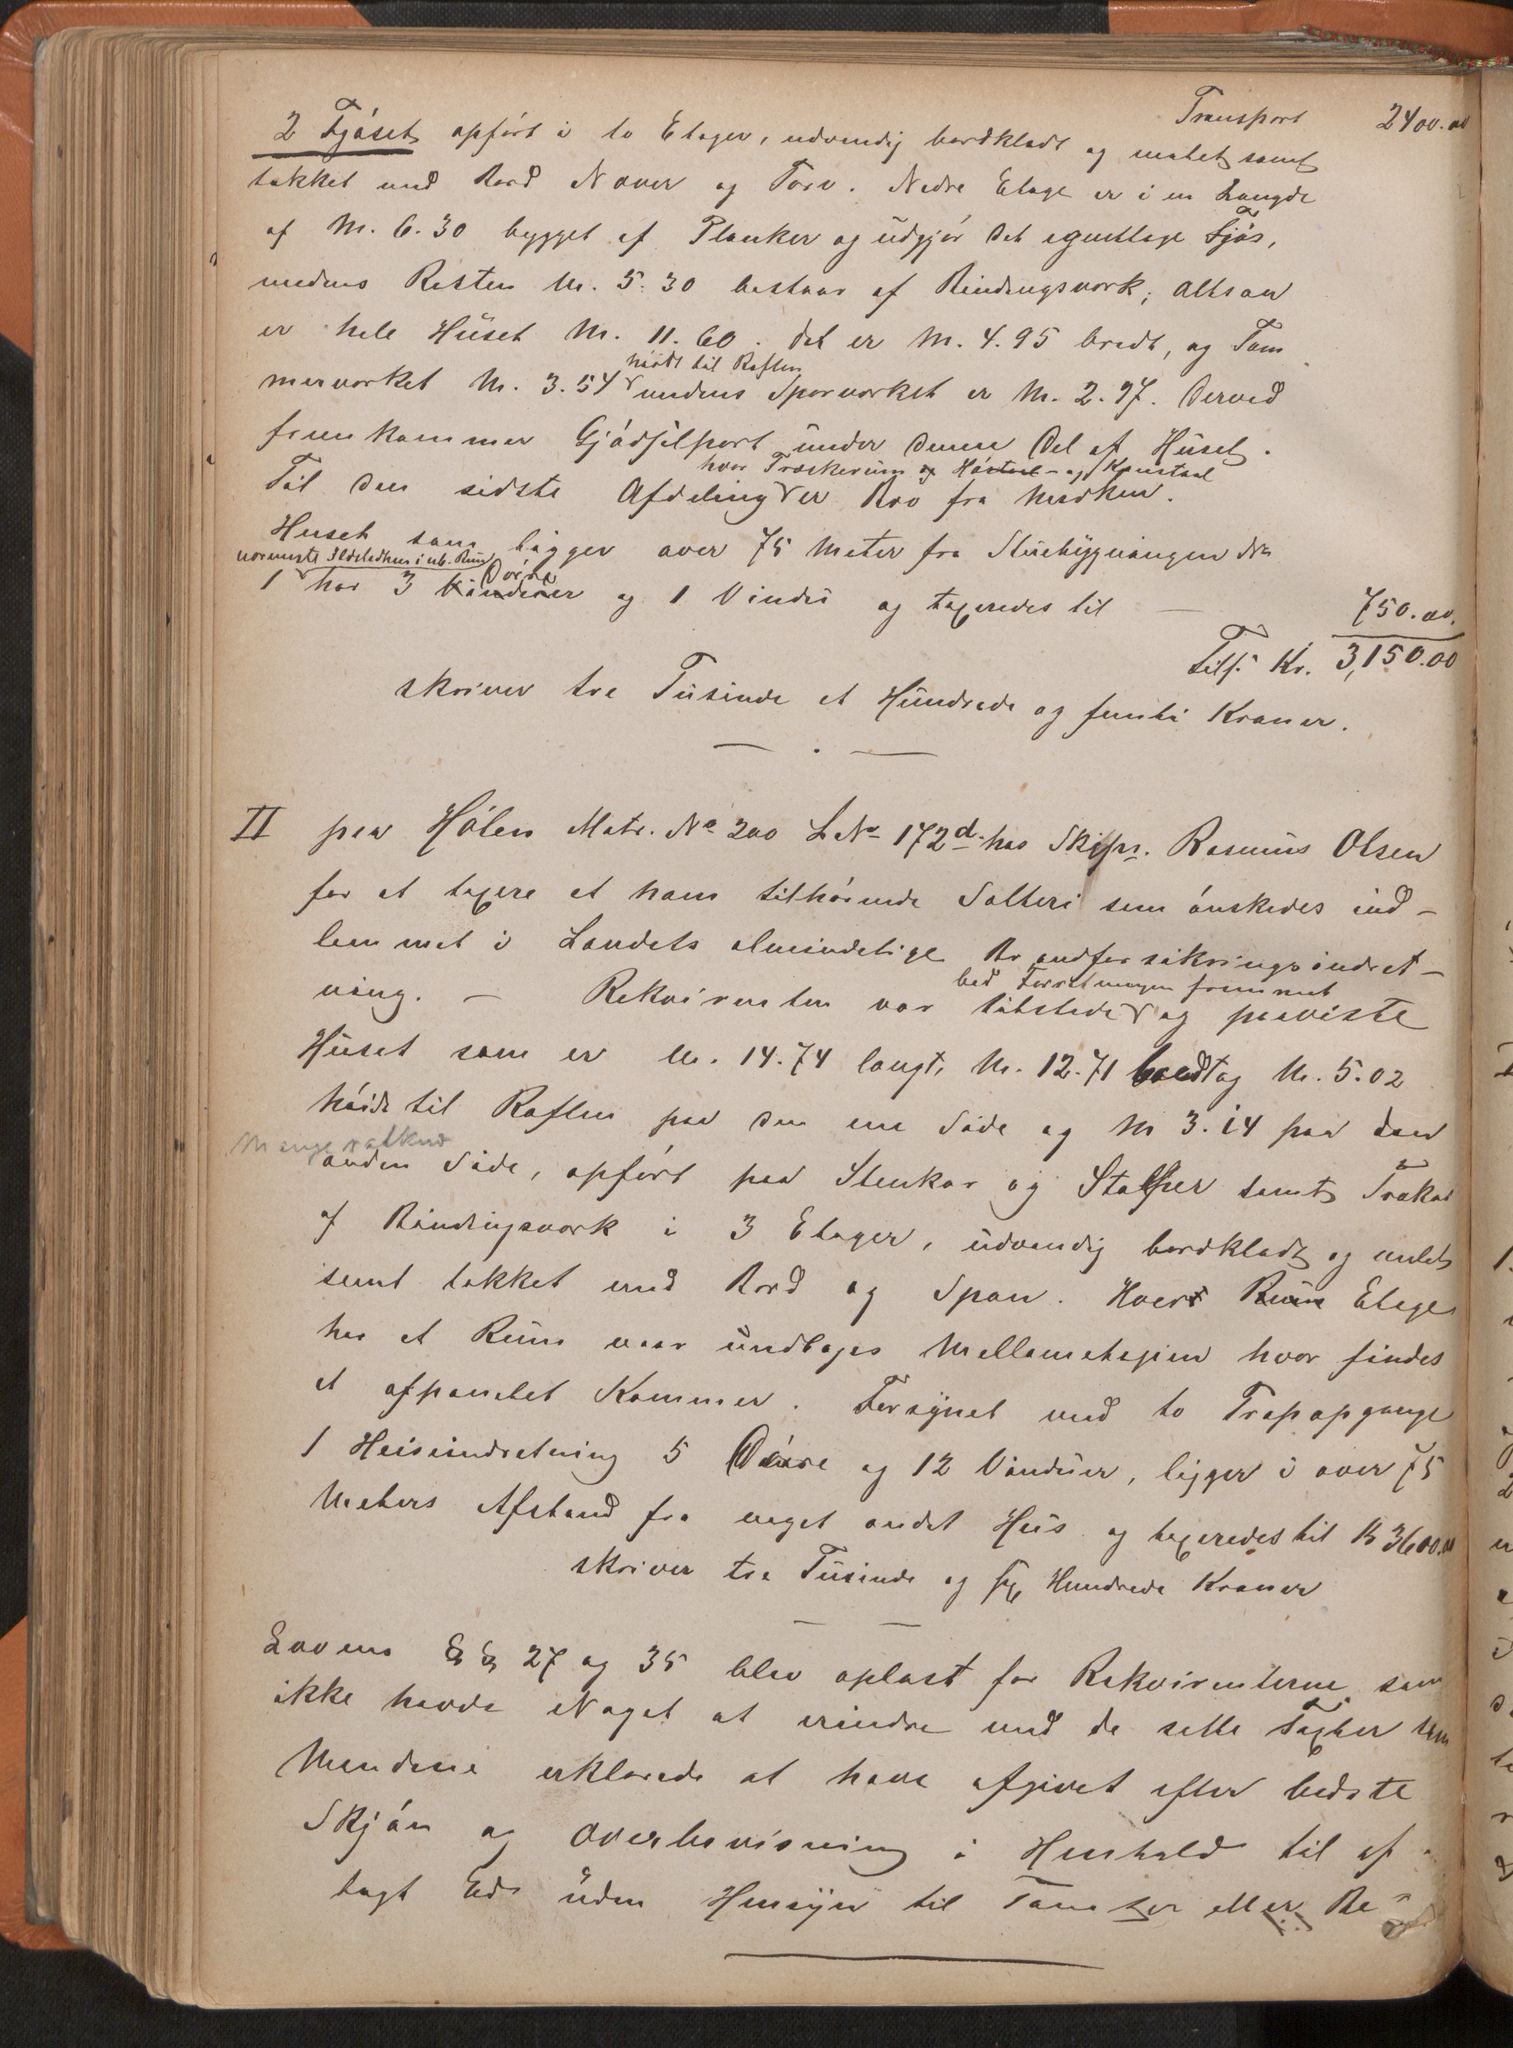 Transport 2400.00
2 Fjöset opfört i to Etager, udvendig bordklædt og malet samt
tækket med Bord Næver og Torv. Nedre Etage er i en Længde
af M. 6.30 bygget af Planker og udgjör det egentlige Fjös,
medens Resten M. 5.30 bestaar af Bindingsværk; altsaa
er hele Huset M. 11.60. det er M. 4.95 bredt, og Töm
höit til Raften
merværket M. 3.54 medens Sperværket er M. 2.97. Derved
fremkommer Gjödselport under denne Del af Huset.
hvor Træskerum og Höstaal og Kornstaal
Til den sidste Afdeling er Bro fra Marken.
Huset som ligger over 75 Meter fra Stuebygningen
nærmeste Ildstedhus i ub. Rum
Döre
1 har 3 Vinduer og 1 Vindu og taxeredes til — 750.00.
Tils. Kr. 3,150.00
skriver tre Tusinde et Hundrede og femti Kroner.
II paa Holen Matr. No 200 L No 172d hos Skipr. Rasmus Olsen
for at taxere et ham tilhörende Salteri som önskedes ind-
lemmet i Landets almindelige Brandforsikringsindret-
ved Forretningen fremmet
ning. — Rekvirenten var tilstede og paaviste
Huset som er M. 14.74 langt, M. 12.71 bredt og M. 5.02
höide til Raften paa den ene Side og M 3.14 paa den
anden Side, opfört paa Stenkar og Stolper samt Trækar
af Bindingsværk i 3 Etager, udvendig bordklædt og malet
samt tækket med Bord og Spon. Hver Rum Etage
har et Rum naar undtages Mellemetagen hvor findes
et afpanelet Kammer. Forsynet med to Trapopgange
1 Heiseindretning 5 Döre og 12 Vinduer, ligger i over 75
Meters Afstand fra noget andet Hus og taxeredes til Kr 3600.00
skriver tre Tusinde og sex Hundrede Kroner
Lovens §§ 27 og 35 blev oplæst for Rekvirenterne som
ikke havde Noget at erindre mod de satte Taxter som
Mændene erklærede at have afgivet efter bedste
Skjön og Overbevisning i Henhold til af-
lagt Ed uden Hensyn til eller Be-